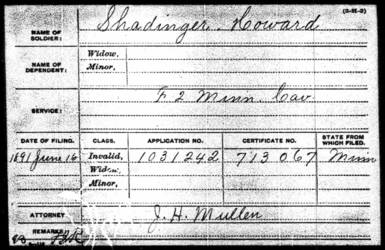 (3-M-2)
NAME OF SOLDIER: Shadinger, Howard
NAME OF DEPENDENT: Widow,
Minor,
SERVICE: F 2 Minn. Cav.
DATE OF FILING. CLASS. APPLICATION NO. CERTIFICATE NO. STATE FROM WHICH FILED.
1891 June 16 Invalid, 1031242 713067 Minn
Widow,
Minor,
ATTORNEY J. H. Mullen
REMARKS: